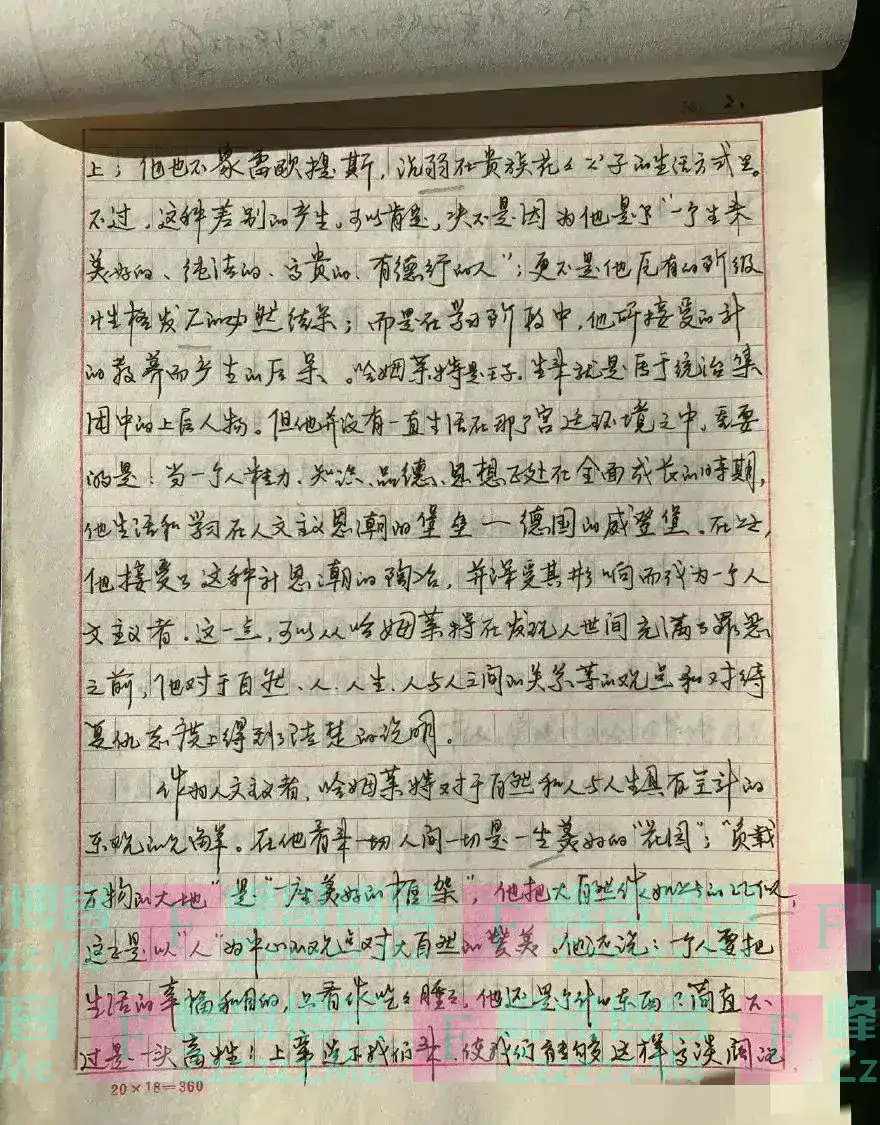 2.
上；他也不象雷欧提斯，沉溺在贵族花花公子的生活方式里。
不过，这种差别的产生，可以肯定，决不是因为他是个"一个生来
美好的、纯洁的、高贵的、有德行的人"；更不是他原有的阶级
性格发展的必然结果；而是在学习阶段中，他所接受的
的教养而产生的后果。哈姆莱特是王子，生来就是属于统治集
团中的上层人物。但他并没有一直生活在那个宫廷环境之中，重要
的是：当一个人精力、知识、品德、思想正处在全面成长的时期，
他生活和学习在人文主义思潮的堡垒—德国的威登堡。在这里，
他接受了这种新思潮的陶冶，并深受其影响而成为一个人
文主义者。这一点，可以从哈姆莱特在发现人世间充满了罪恶
之前，他对于自然、人、人生、人与人之间的关系等的观点和对待
复仇态度上得到了清楚的说明。
作为人文主义者，哈姆莱特对于自然和人与人生具有
乐观的见解。在他看来一切人间一切是一生美好的"花园"；"负载
万物的大地"是"一座美好的框架"，他把大自然作如此的比似，
这正是以"人"为中心的观点对大自然的赞美。他还说：一个人要把
生活的幸福和目的，只看作吃吃睡睡，他还是个什么东西？简直不
过是一头畜牲！上帝造下我们来，使我们能够这样高谈阔论，
20×18=360
峰哥博客
zZzzZz.Me